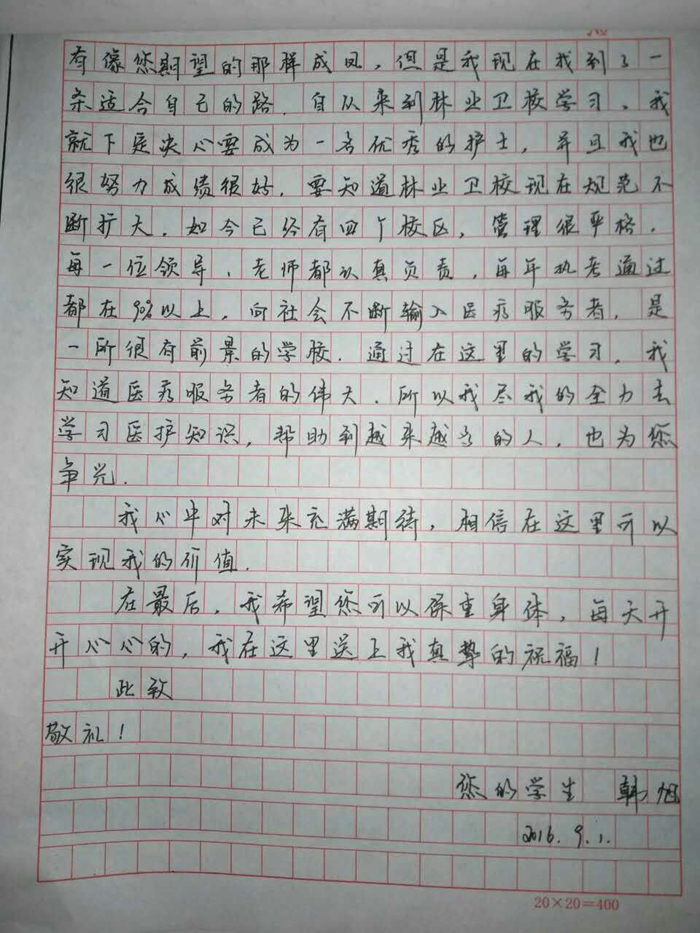 有像您期望的那样成凤，但是我现在找到了一
条适合自己的路．自从来到林业卫校学习，我
就下定决心要成为一名优秀的护士，并且我也
很努力成绩很好．要知道林业卫校现在规范不
断扩大．如今已经有四个校区，管理很严格．
每一位领导、老师都认真负责，每年执考通过
都在90%以上，向社会不断输入医疗服务者，是
一所很有前景的学校．通过在这里的学习，我
知道医疗服务者的伟大．所以我尽我的全力去
学习医护知识，帮助到越来越多的人，也为您
争光．
我心中对未来充满期待，相信在这里可以
实现我的价值．
在最后，我希望您可以保重身体，每天开
开心心的，我在这里送上我真挚的祝福！
此致
敬礼！
您的学生 韩旭
2016.9.1.
20×20=400